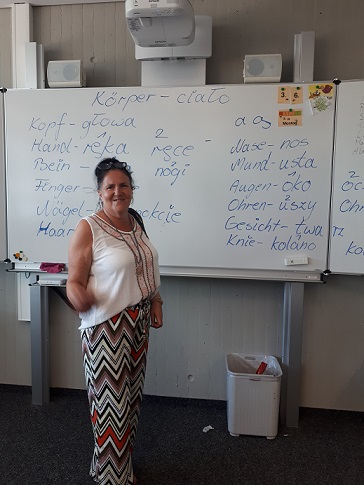 Körper - ciało
Kopf - głowa
Hand - rêka 2 ręce -
Bein - nógi
Finger -
Nägel - nekcie
Haar
a ąs
Nase - nos
Mund - usta
Augen - oko
Ohren - uszy
Gesicht - twarz
Knie - kolano
3. 6.